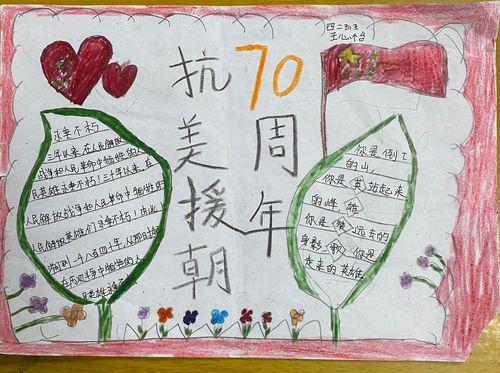 四二班
抗美援朝
70周年
永垂不朽
三年以来，在人民解放
战争和人民革命中牺牲的人
民英雄永垂不朽！三十年以来，在
人民解放战争和人民革命中牺牲的
人民英雄们永垂不朽！由此上
溯到一千八百四十年，从那时
在历次斗争中牺牲的人
民英雄永垂不
你是倒下
的山，
你是英站起来
的峰，雄
你是赞远去的
身影，歌你是
走来的英雄